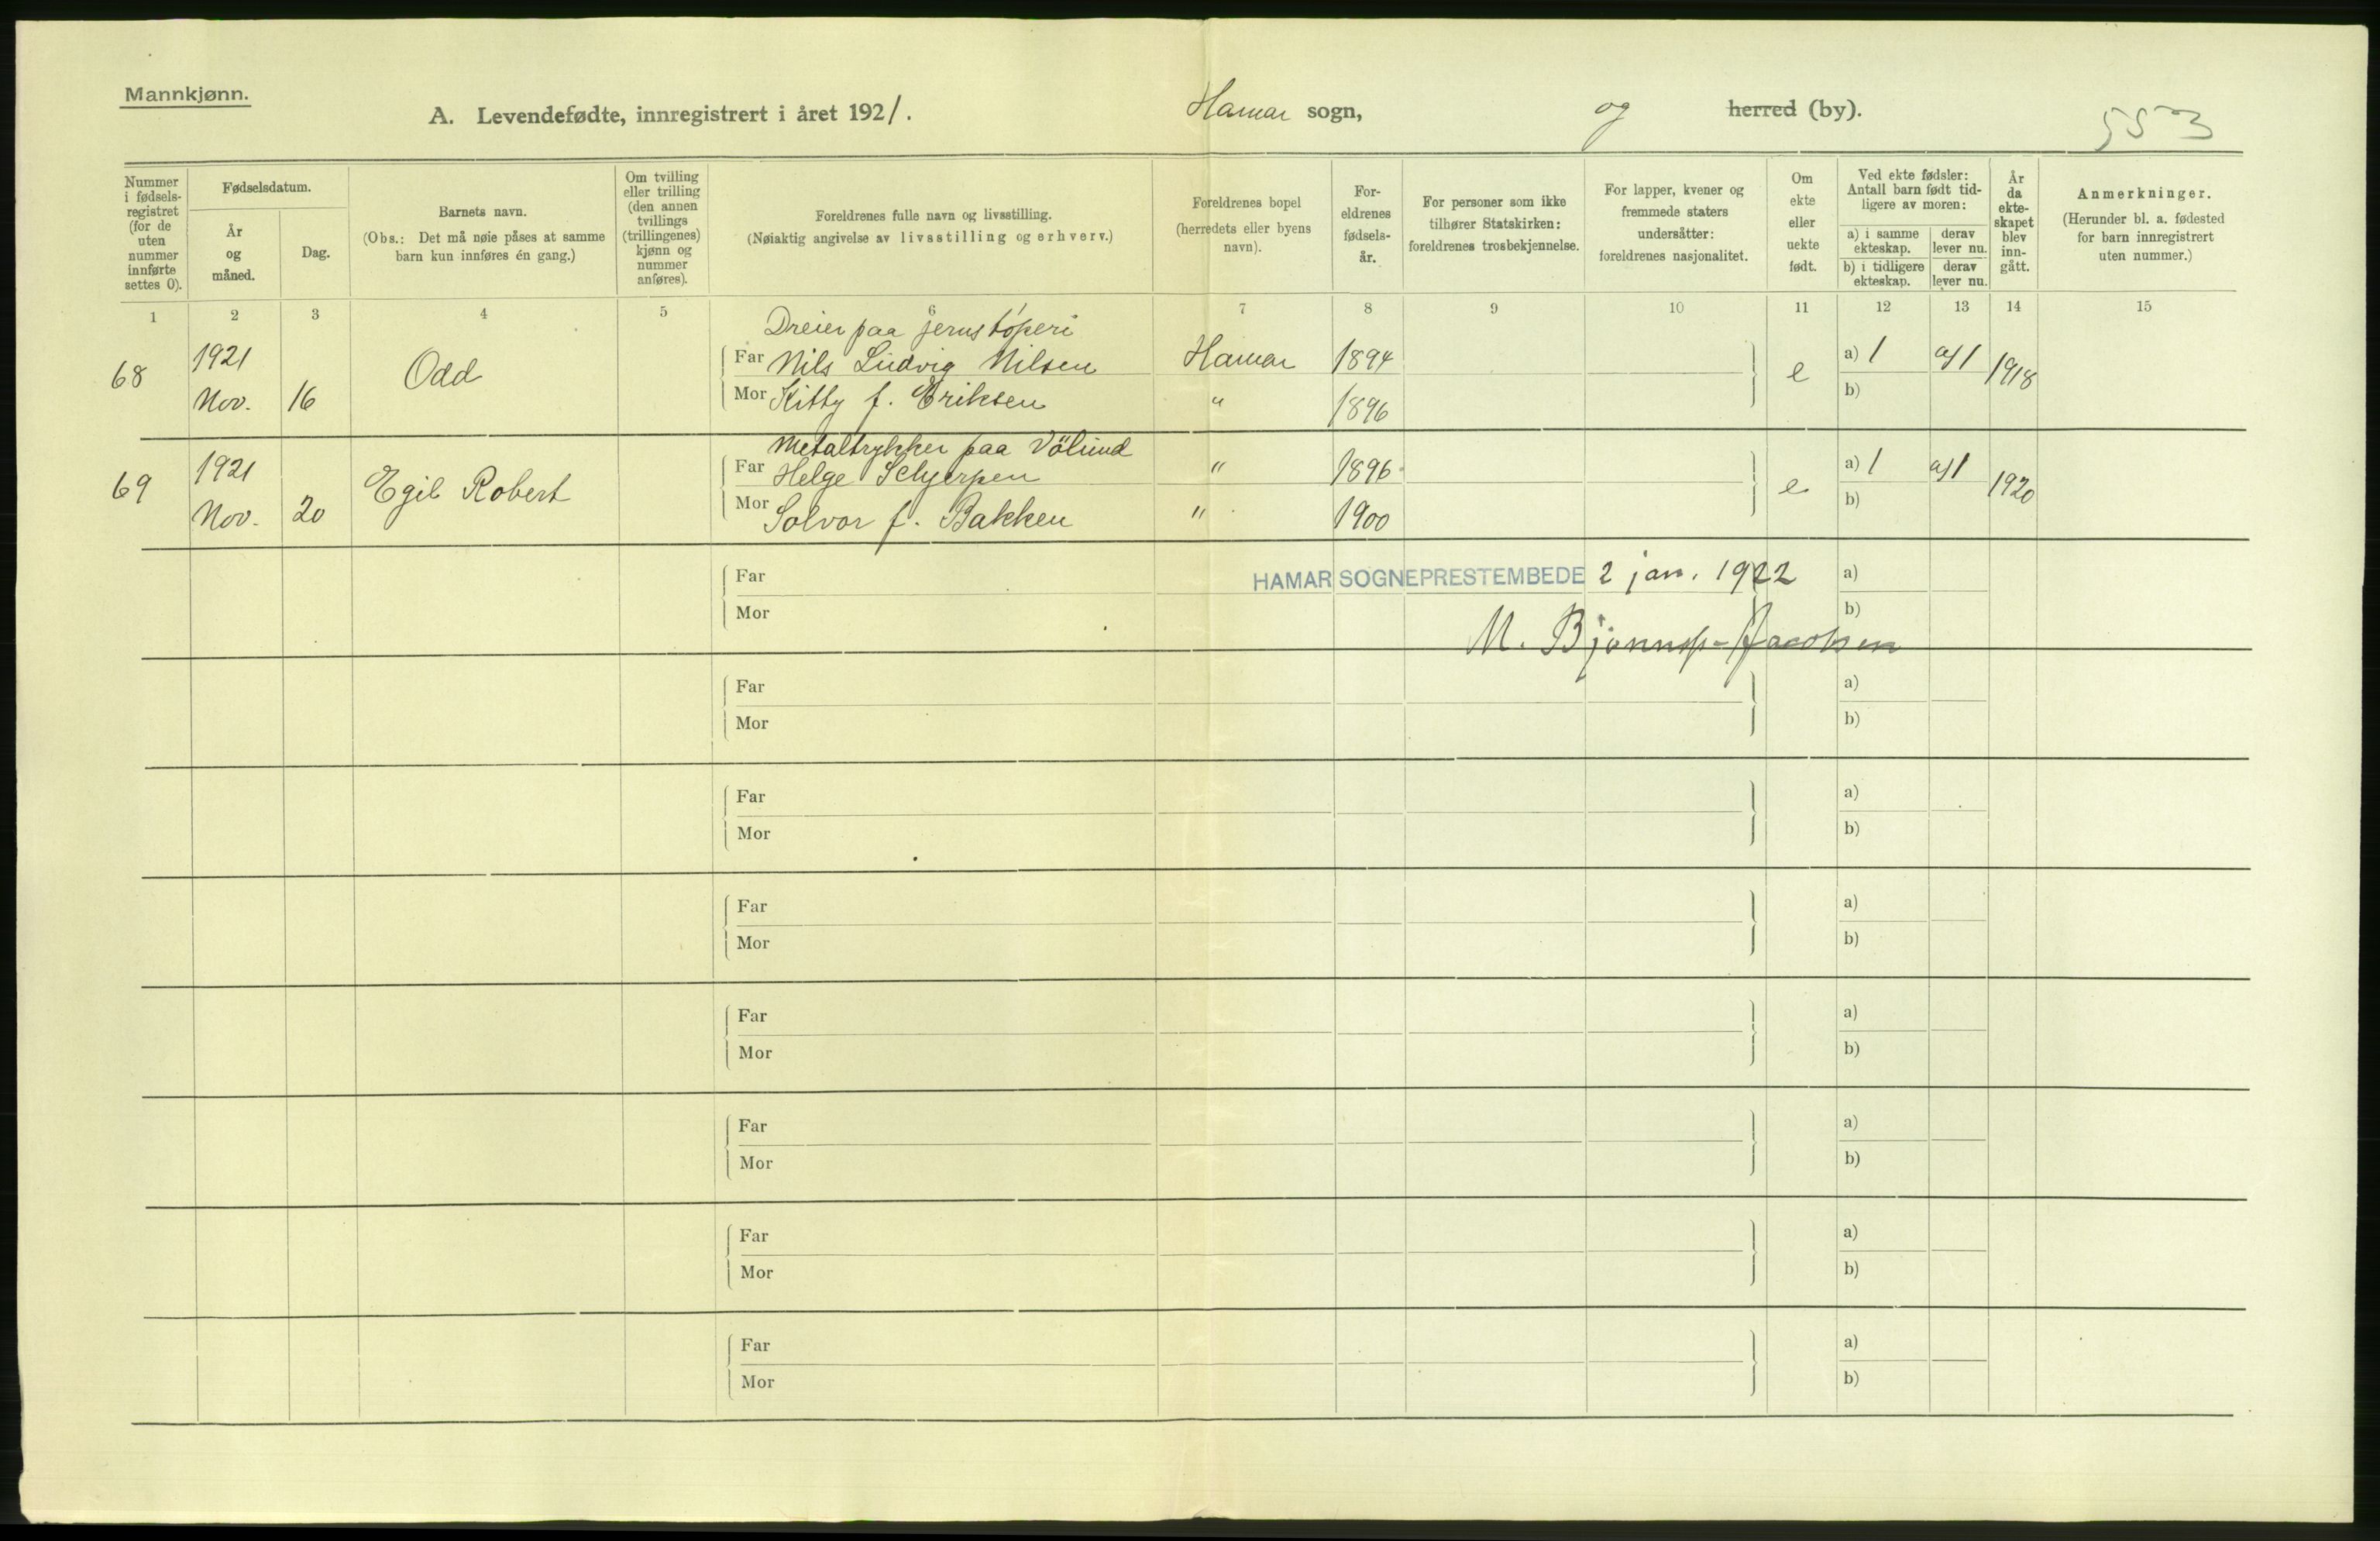 Mannkjønn.
A. Levendefødte, innregistrert i året 1921. Hamar sogn, og herred (by). 553
Nummer i fødselsregistret (for de uten nummer innførte settes 0).
Fødselsdatum.
År og måned.
Dag.
Barnets navn.
(Obs.: Det må nøie påses at samme barn kun innføres én gang.)
Om tvilling eller trilling (den annen tvillings (trillingenes) kjønn og nummer anføres).
Foreldrenes fulle navn og livsstilling.
(Nøiaktig angivelse av livsstilling og erhverv.)
Foreldrenes bopel (herredets eller byens navn).
Foreldrenes fødselsår.
For personer som ikke tilhører Statskirken: foreldrenes trosbekjennelse.
For lapper, kvener og fremmede staters undersåtter: foreldrenes nasjonalitet.
Om ekte eller uekte født.
Ved ekte fødsler: Antall barn født tidligere av moren:
a) i samme ekteskap. derav lever nu.
b) i tidligere ekteskap. derav lever nu.
År da ekteskapet blev inngått.
Anmerkninger.
(Herunder bl. a. fødested for barn innregistrert uten nummer.)
1 2 3 4 5 6 7 8 9 10 11 12 13 14 15
Dreier paa jernstøperi
68 1921 Nov. 16 Odd
Far Nils Ludvig Nilsen Hamar 1894 e a) 1 a) 1 1918
Mor Kitty f. Eriksen " 1896 b)
Metaltrykker paa Völund
69 1921 Nov. 20 Egil Robert
Far Helge Schjerpen " 1896 e a) 1 a) 1 1920
Mor Solvor f. Bakken " 1900 b)
Far HAMAR SOGNEPRESTEMBEDE 2 jan. 1922 a)
Mor b)
M. Bjønnes-Jacobsen
Far a)
Mor b)
Far a)
Mor b)
Far a)
Mor b)
Far a)
Mor b)
Far a)
Mor b)
Far a)
Mor b)
Far a)
Mor b)